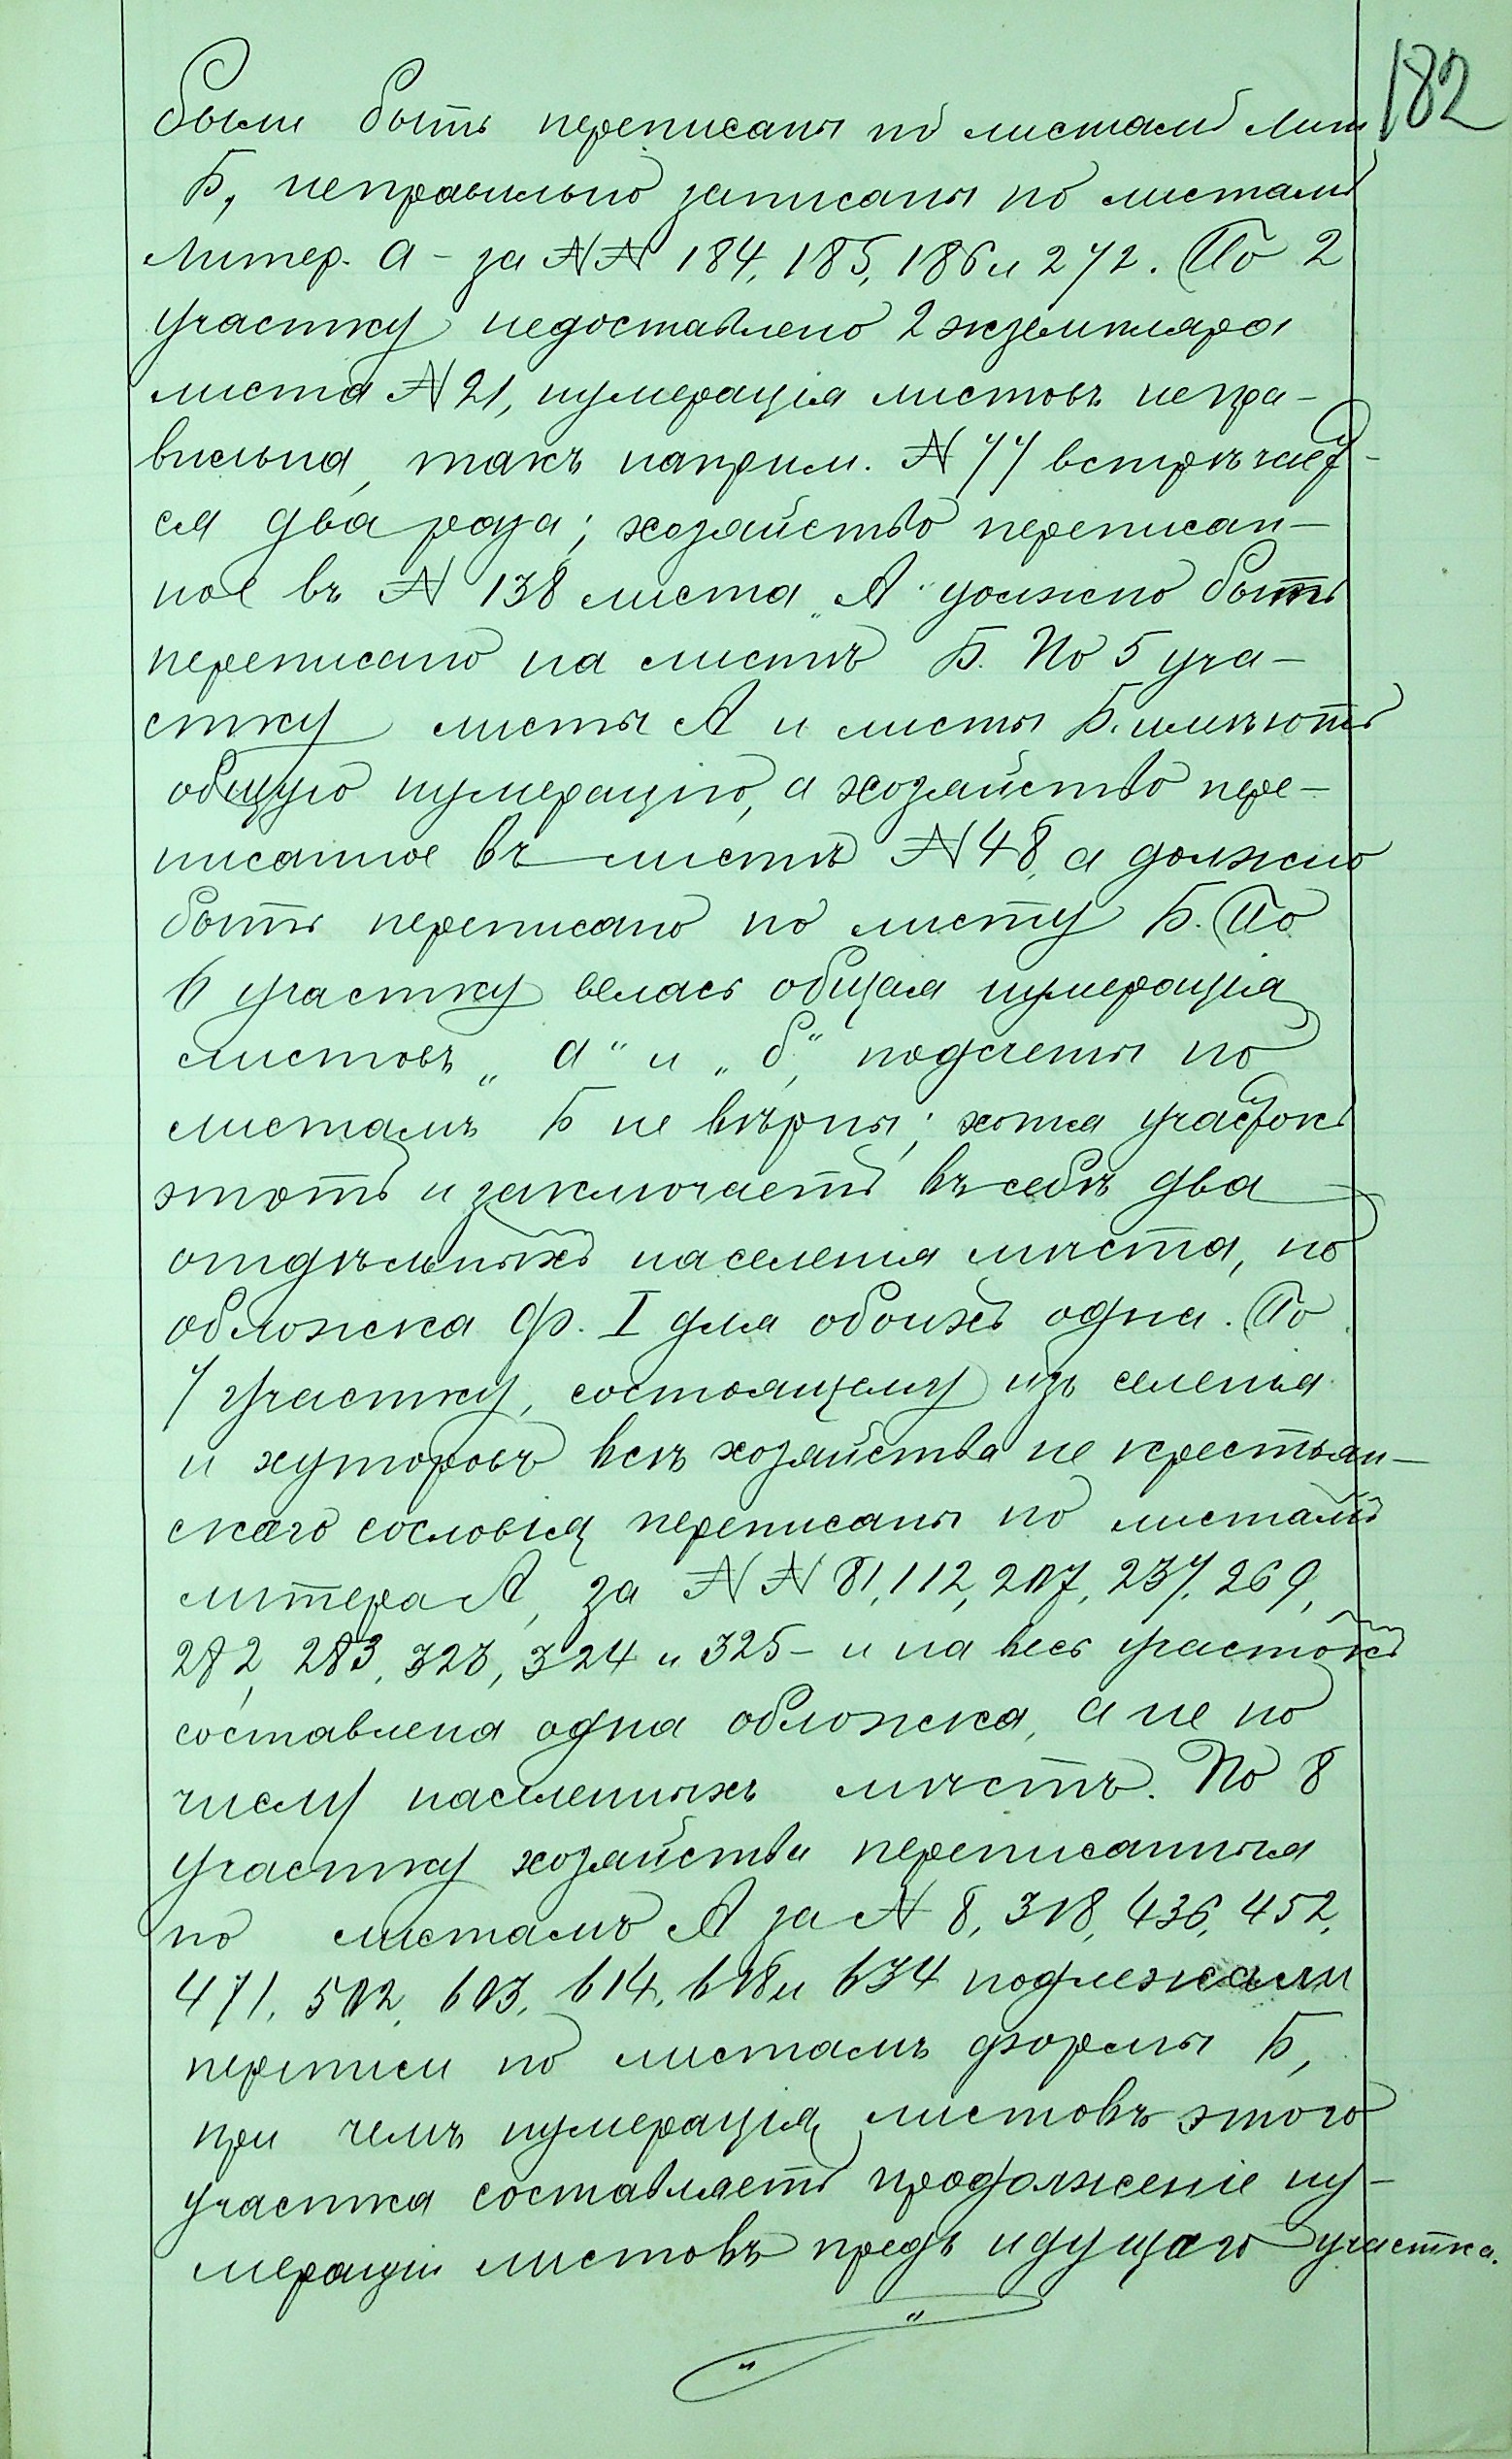 182
были быть переписаны по листамъ Лит
Б, неправильно записаны по листамъ
Литер. А – за №№ 184, 185, 186 и 272. По 2
участку недоставлено 2 экземпляра
листа № 21, нумерація листовъ непра-
вильна, такъ наприм. № 77 встрѣчает-
ся два раза; хозяйство переписан-
ное въ № 138 листа „А“ должно быть
переписано на листѣ Б. По 5 уча-
стку листы А и листы Б. имѣютъ
общую нумерацію, а хозяйство пере-
писанное въ листѣ № 48, а должно
быть переписано по листу Б. По
6 участку велась общая нумерація
листовъ „а“ и „б“, подсчеты по
листамъ Б не вѣрны; хотя участокъ
этотъ и заключаетъ въ себѣ два
отдѣльныхъ населенія мѣста, но
обложка ф. I для обоихъ одна. По
7 участку, состоящему изъ селенія
и хуторовъ всѣ хозяйства не крестьян-
скаго сословія переписаны по листамъ
литера А, за №№ 81, 112, 207, 237, 269,
282, 283, 323, 324 и 325 – и на весь участокъ
составлена одна обложка, а не по
числу населенныхъ мѣстъ. По 8
участку хозяйства переписанныя
по листамъ А за № 8, 318, 436, 452,
471, 502, 603, 614, 618 и 634 подлежали
переписи по листамъ формы Б,
при чемъ нумерація листовъ этого
участка составляетъ продолженіе ну-
мераціи листовъ предъ идущаго участка.